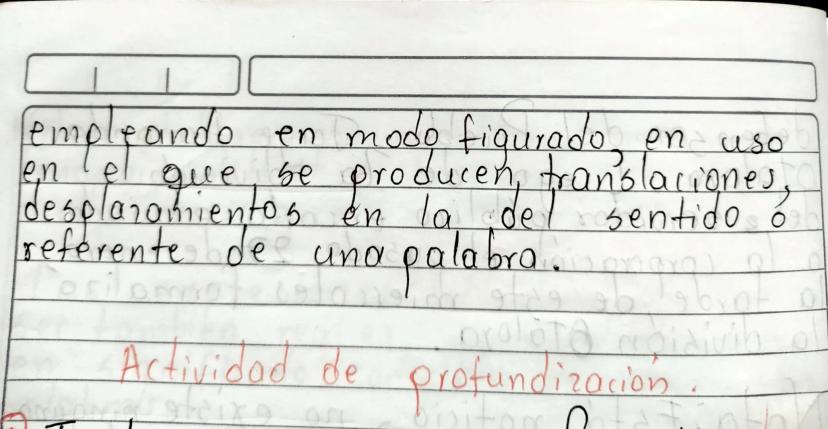 empleando en modo figurado, en uso
en el que se producen, translaciones,
desplazamientos en la del sentido ó
referente de una palabra.
Actividad de profundización.